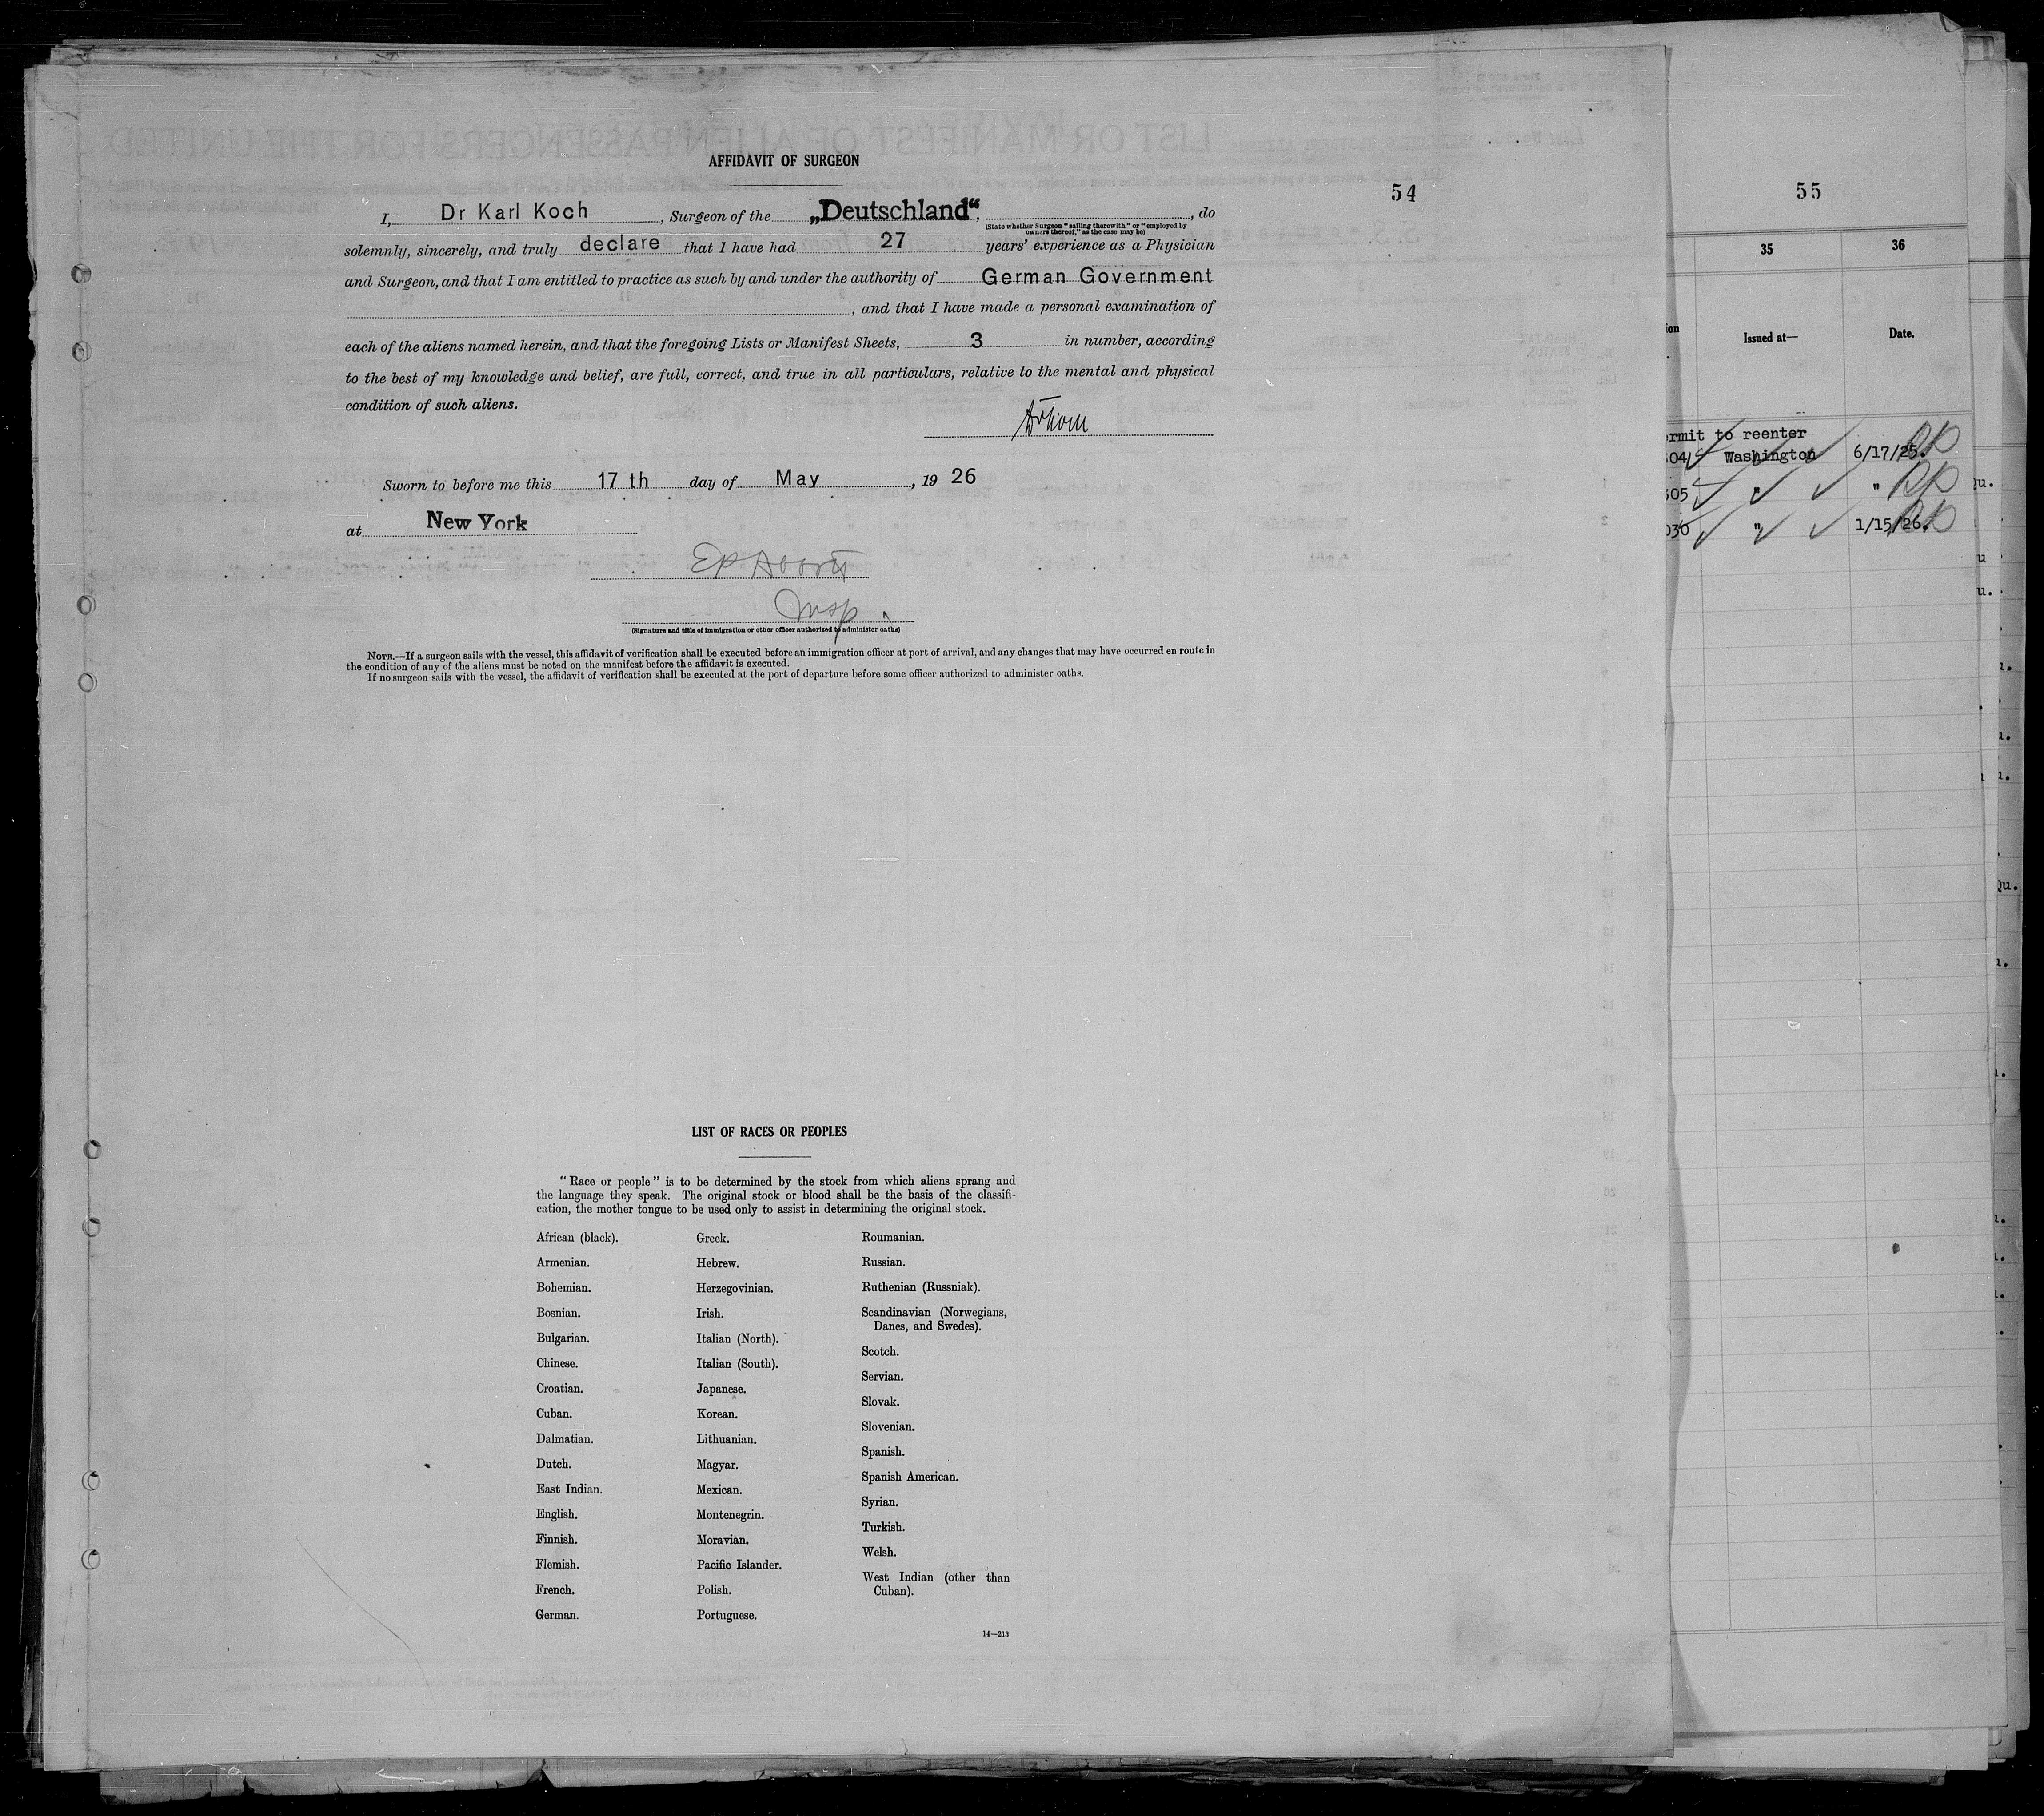 AFFIDAVIT OF SURGEON
54
I, Dr Karl Koch, Surgeon of the „Deutschland“, , do
(State whether Surgeon "sailing therewith" or "employed by
owners thereof," as the case may be)
solemnly, sincerely, and truly declare that I have had 27 years' experience as a Physician
and Surgeon, and that I am entitled to practice as such by and under the authority of German Government
, and that I have made a personal examination of
each of the aliens named herein, and that the foregoing Lists or Manifest Sheets, 3 in number, according
to the best of my knowledge and belief, are full, correct, and true in all particulars, relative to the mental and physical
condition of such aliens.
Sworn to before me this 17 th day of May, 19 26
at New York
Insp.
(Signature and title of immigration or other officer authorized to administer oaths)
NOTE.—If a surgeon sails with the vessel, this affidavit of verification shall be executed before an immigration officer at port of arrival, and any changes that may have occurred en route in
the condition of any of the aliens must be noted on the manifest before the affidavit is executed.
If no surgeon sails with the vessel, the affidavit of verification shall be executed at the port of departure before some officer authorized to administer oaths.
LIST OF RACES OR PEOPLES
"Race or people" is to be determined by the stock from which aliens sprang and
the language they speak. The original stock or blood shall be the basis of the classifi-
cation, the mother tongue to be used only to assist in determining the original stock.
African (black).
Armenian.
Bohemian.
Bosnian.
Bulgarian.
Chinese.
Croatian.
Cuban.
Dalmatian.
Dutch.
East Indian.
English.
Finnish.
Flemish.
French.
German.
Greek.
Hebrew.
Herzegovinian.
Irish.
Italian (North).
Italian (South).
Japanese.
Korean.
Lithuanian.
Magyar.
Mexican.
Montenegrin.
Moravian.
Pacific Islander.
Polish.
Portuguese.
Roumanian.
Russian.
Ruthenian (Russniak).
Scandinavian (Norwegians,
Danes, and Swedes).
Scotch.
Servian.
Slovak.
Slovenian.
Spanish.
Spanish American.
Syrian.
Turkish.
Welsh.
West Indian (other than
Cuban).
14—213
55
35 36
Issued at— Date.
ermit to reenter
Washington 6/17/25.
" "
" 1/15/26.